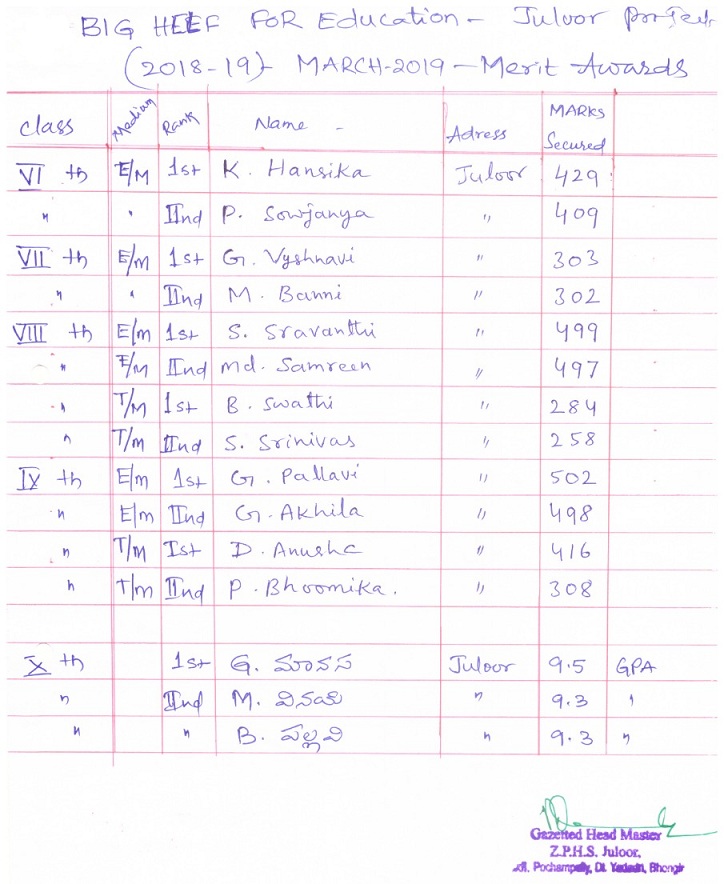 BIG HEEF FOR Education - Juloor Project
(2018-19) MARCH-2019 - Merit Awards
class Medium Rank Name - Adress MARKs Secured
VI th E/M 1st K. Hansika Juloor 429
" " IInd P. Sowjanya " 409
VII th E/m 1st G. Vyshnavi " 303
" " IInd M. Banni " 302
VIII th E/m 1st S. Sravanthi " 499
" E/M IInd md. Samreen " 497
" T/M 1st B. Swathi " 284
" T/m IInd S. Srinivas " 258
IX th E/m 1st G. Pallavi " 502
" E/m IInd G. Akhila " 498
" T/M Ist D. Anusha " 416
" T/m IInd P. Bhoomika. " 308
X th 1st G. మానస Juloor 9.5 GPA
" IInd M. వినయ " 9.3 "
" " B. పల్లవి " 9.3 "
Gazetted Head Master
Z.P.H.S. Juloor,
Pochampally, Dt. Yadadri, Bhongir